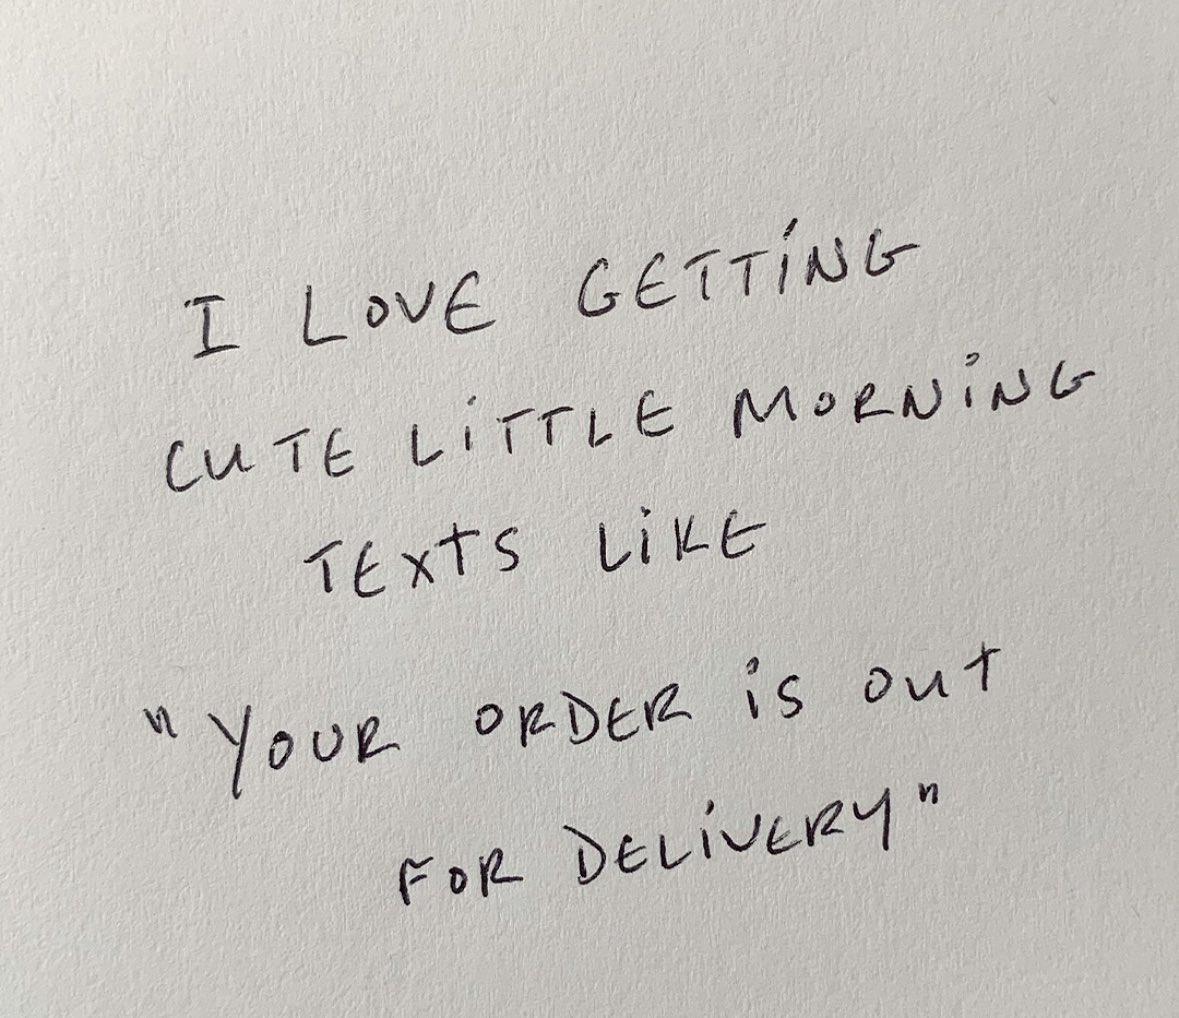 I LOVE GETTING
CUTE LiTTLE MORNiNG
TEXTS LiKE
"YOUR ORDER is Out
FOR DELiVERY"